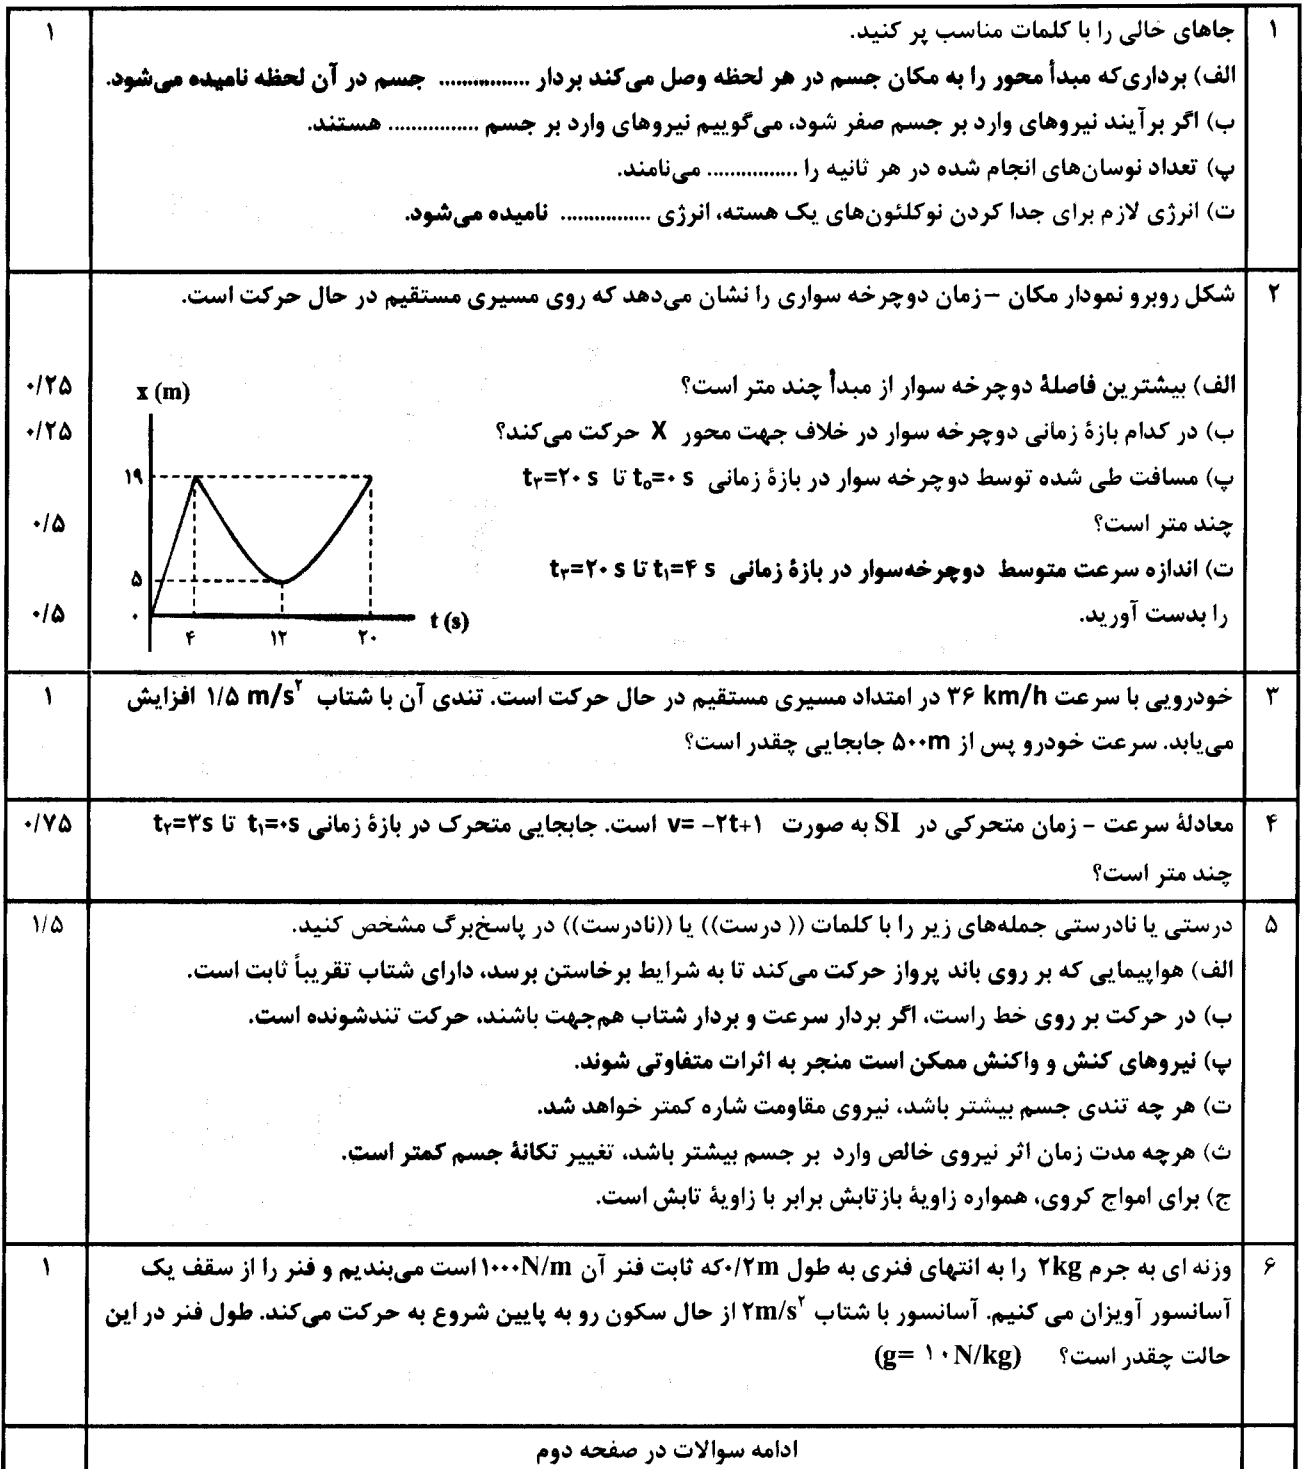 ۱ جاهای خالی را با کلمات مناسب پر کنید. ۱
الف) برداری‌که مبدأ محور را به مکان جسم در هر لحظه وصل می‌کند بردار ................ جسم در آن لحظه نامیده می‌شود.
ب) اگر برآیند نیروهای وارد بر جسم صفر شود، می‌گوییم نیروهای وارد بر جسم ................ هستند.
پ) تعداد نوسان‌های انجام شده در هر ثانیه را ................ می‌نامند.
ت) انرژی لازم برای جدا کردن نوکلئون‌های یک هسته، انرژی ................ نامیده می‌شود.
۲ شکل روبرو نمودار مکان –زمان دوچرخه سواری را نشان می‌دهد که روی مسیری مستقیم در حال حرکت است.
الف) بیشترین فاصلهٔ دوچرخه سوار از مبدأ چند متر است؟ ۰/۲۵
ب) در کدام بازهٔ زمانی دوچرخه سوار در خلاف جهت محور X حرکت می‌کند؟ ۰/۲۵
پ) مسافت طی شده توسط دوچرخه سوار در بازهٔ زمانی t₀=۰ s تا t₃=۲۰ s
چند متر است؟ ۰/۵
ت) اندازه سرعت متوسط دوچرخه‌سوار در بازهٔ زمانی t₁=۴ s تا t₃=۲۰ s
را بدست آورید. ۰/۵
x (m)
۱۹
۵
۰
۴ ۱۲ ۲۰
t (s)
۳ خودرویی با سرعت ۳۶ km/h در امتداد مسیری مستقیم در حال حرکت است. تندی آن با شتاب ۱/۵ m/s² افزایش ۱
می‌یابد. سرعت خودرو پس از ۵۰۰m جابجایی چقدر است؟
۴ معادلهٔ سرعت - زمان متحرکی در SI به صورت v= –۲t+۱ است. جابجایی متحرک در بازهٔ زمانی t₁=۰s تا t₂=۳s ۰/۷۵
چند متر است؟
۵ درستی یا نادرستی جمله‌های زیر را با کلمات (( درست)) یا ((نادرست)) در پاسخ‌برگ مشخص کنید. ۱/۵
الف) هواپیمایی که بر روی باند پرواز حرکت می‌کند تا به شرایط برخاستن برسد، دارای شتاب تقریباً ثابت است.
ب) در حرکت بر روی خط راست، اگر بردار سرعت و بردار شتاب هم‌جهت باشند، حرکت تندشونده است.
پ) نیروهای کنش و واکنش ممکن است منجر به اثرات متفاوتی شوند.
ت) هر چه تندی جسم بیشتر باشد، نیروی مقاومت شاره کمتر خواهد شد.
ث) هرچه مدت زمان اثر نیروی خالص وارد بر جسم بیشتر باشد، تغییر تکانهٔ جسم کمتر است.
ج) برای امواج کروی، همواره زاویهٔ بازتابش برابر با زاویهٔ تابش است.
۶ وزنه ای به جرم ۲kg را به انتهای فنری به طول ۰/۲m که ثابت فنر آن ۱۰۰۰N/m است می‌بندیم و فنر را از سقف یک ۱
آسانسور آویزان می کنیم. آسانسور با شتاب ۲m/s² از حال سکون رو به پایین شروع به حرکت می‌کند. طول فنر در این
حالت چقدر است؟ (g= ۱۰N/kg)
ادامه سوالات در صفحه دوم